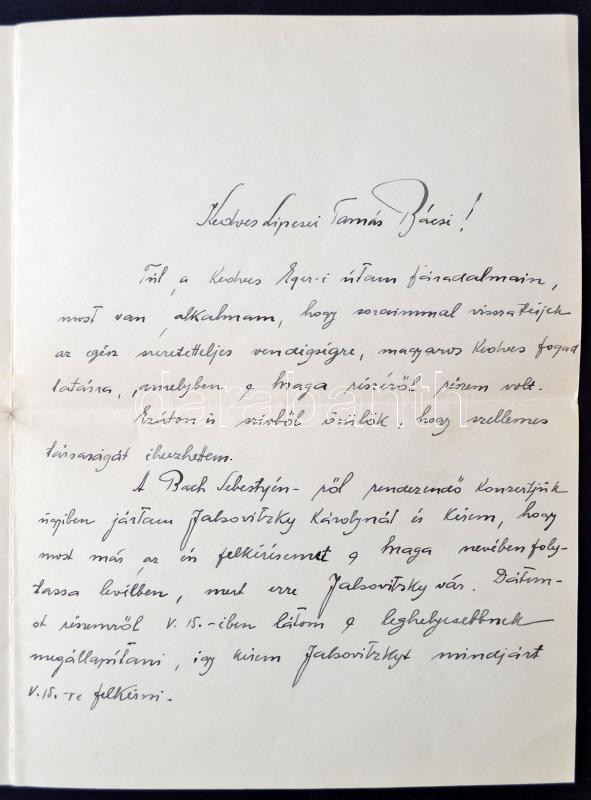 Kedves Lipcsei Tamás Bácsi!
Túl, a Kedves Eger-i útam fáradalmain,
most van alkalmam, hogy soraimmal visszatérjek
az egész szeretetteljes vendégségre, magyaros Kedves fogad
tatásra, amelyben a Maga részéről részem volt.
Ezúton is szivből örülök, hogy szellemes
társaságát élvezhettem.
A Bach Sebestyén-ről rendezendő Konzertjük
ügyiben jártam Jalsovitzky Károlynál és Kérem, hogy
most már az én felkérésemet a Maga nevében foly-
tassa levélben, mert erre Jalsovitsky vár. Dátum-
ot részemről V. 15.-iben látom a leghelyesebbnek
megállapítani, így kérem Jalsovitzkyt mindjárt
V. 15.-re felkérni.
darabanth